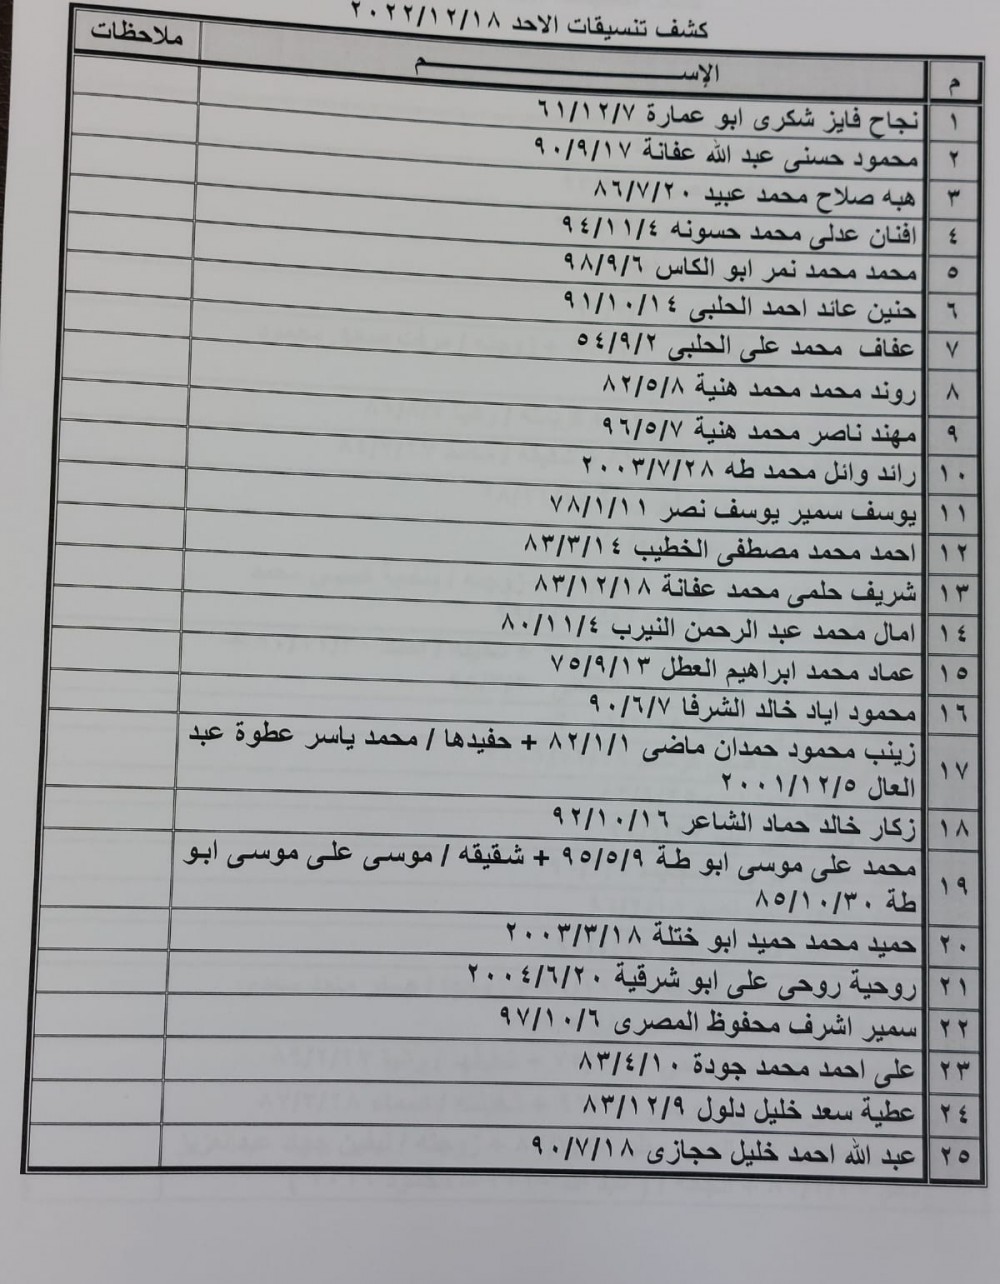 كشف تنسيقات الاحد ٢٠٢٢/١٢/١٨
م الإســـــــــم ملاحظات
١ نجاح فايز شكرى ابو عمارة ٦١/١٢/٧
٢ محمود حسنى عبد الله عفانة ٩٠/٩/١٧
٣ هبه صلاح محمد عبيد ٨٦/٧/٢٠
٤ افنان عدلى محمد حسونه ٩٤/١١/٤
٥ محمد محمد نمر ابو الكاس ٩٨/٩/٦
٦ حنين عائد احمد الحلبى ٩١/١٠/١٤
٧ عفاف محمد على الحلبى ٥٤/٩/٢
٨ روند محمد محمد هنية ٨٢/٥/٨
٩ مهند ناصر محمد هنية ٩٦/٥/٧
١٠ رائد وائل محمد طه ٢٠٠٣/٧/٢٨
١١ يوسف سمير يوسف نصر ٧٨/١/١١
١٢ احمد محمد مصطفى الخطيب ٨٣/٣/١٤
١٣ شريف حلمى محمد عفانة ٨٣/١٢/١٨
١٤ امال محمد عبد الرحمن النيرب ٨٠/١١/٤
١٥ عماد محمد ابراهيم العطل ٧٥/٩/١٣
١٦ محمود اياد خالد الشرفا ٩٠/٦/٧
١٧ زينب محمود حمدان ماضى ٨٢/١/١ + حفيدها / محمد ياسر عطوة عبد
العال ٢٠٠١/١٢/٥
١٨ زكار خالد حماد الشاعر ٩٢/١٠/١٦
١٩ محمد على موسى ابو طة ٩٥/٥/٩ + شقيقه / موسى على موسى ابو
طة ٨٥/١٠/٣٠
٢٠ حميد محمد حميد ابو ختلة ٢٠٠٣/٣/١٨
٢١ روحية روحى على ابو شرقية ٢٠٠٤/٦/٢٠
٢٢ سمير اشرف محفوظ المصرى ٩٧/١٠/٦
٢٣ على احمد محمد جودة ٨٣/٤/١٠
٢٤ عطية سعد خليل دلول ٨٣/١٢/٩
٢٥ عبد الله احمد خليل حجازى ٩٠/٧/١٨